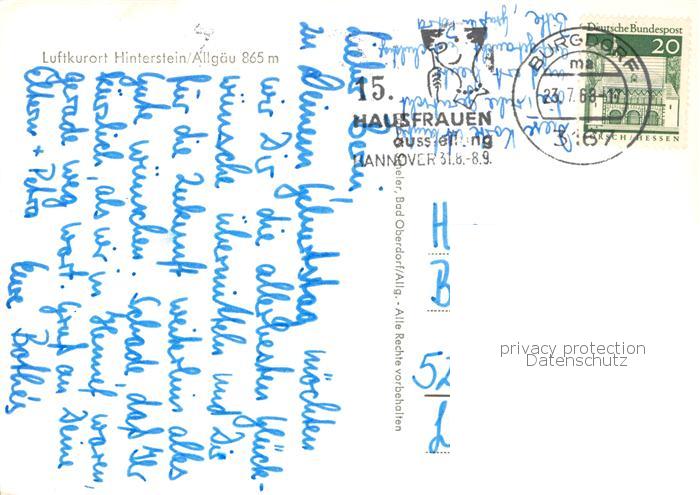 Luftkurort Hinterstein/Allgäu 865 m
Deutsche Bundespost
20
LORSCH/HESSEN
BURGDORF
23.7.68
3167
15.
HAUSFRAUEN
ausstellung
HANNOVER 31.8.-8.9.
zu Deinem Geburtstag möchten
wir Dir die allerbesten Glück-
wünsche übermitteln und Dir
für die Zukunft weiterhin alles
Gute wünschen. Schade daß Ihr
kürzlich, als wir in waren
gerade weg wart. Gruß an Deine
Eltern + Petra
Eure
Bad Oberdorf/Allg. - Alle Rechte vorbehalten
H
B
52
L
privacy protection
Datenschutz